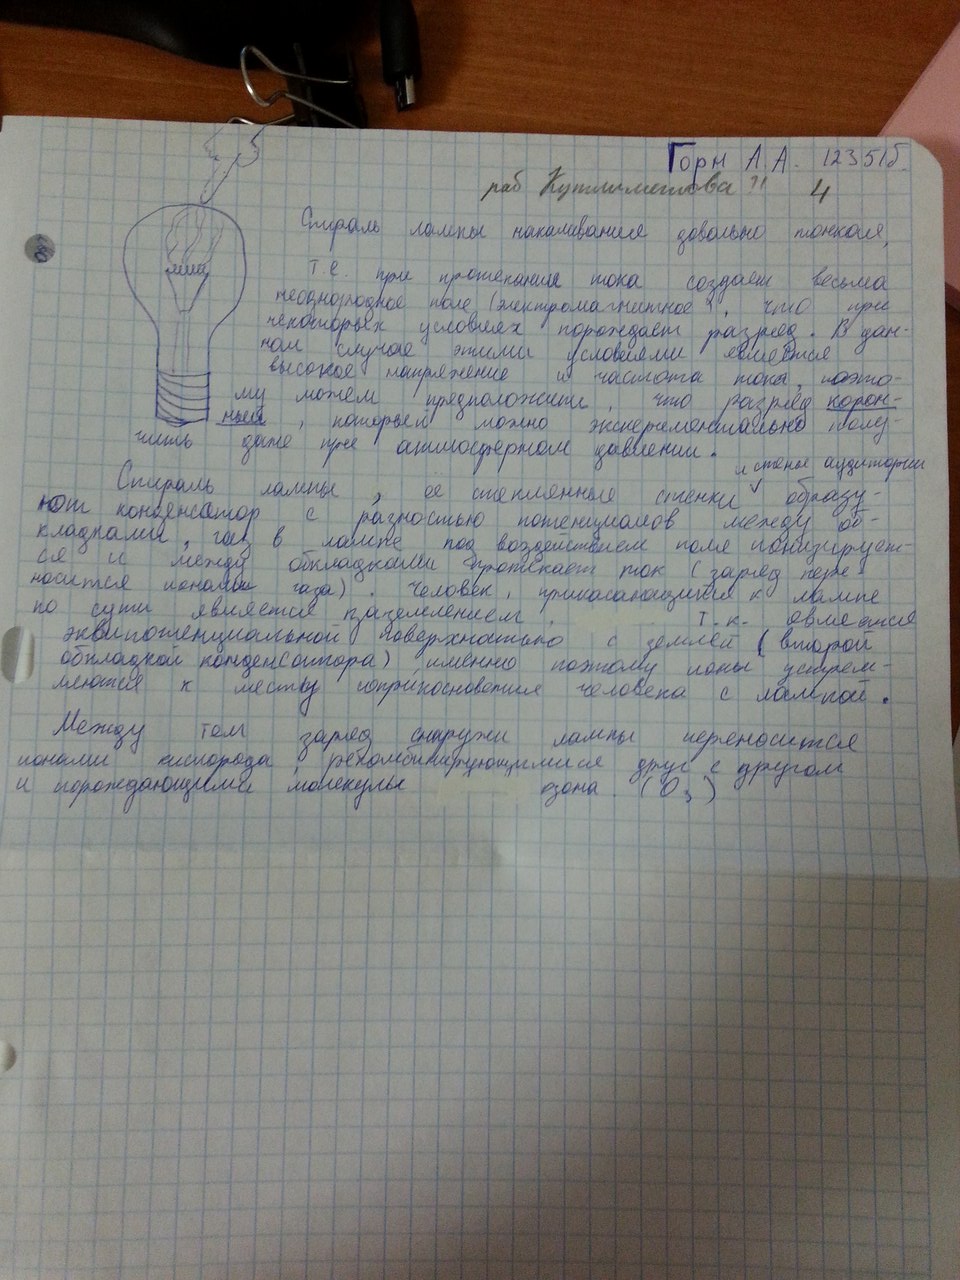 Горн А.А. 12351б.
раб 4
Спираль лампы накаливания довольно тонкая,
т.е. при протекании тока создает весьма
неоднородное поле (электромагнитное), что при
некоторых условиях порождает разряд. В дан-
ном случае этими условиями является
высокое напряжение и частота тока, поэто-
му можем предположить, что разряд корон-
ный, который можно эксперементально полу-
чить даже при атмосферном давлении.
и стены аудитории
Спираль лампы, ее стеклянные стенки образу-
ют конденсатор с разностью потенциалов между об-
кладками, газ в лампе под воздействием поля ионизирует-
ся и между обкладками протекает ток (заряд пере-
носится ионами газа). Человек, прикасающийся к лампе
по сути является заземлением, т.к. является
эквипотенциальной поверхностью с землей (второй
обкладкой конденсатора) именно поэтому ионы устрем-
ляются к месту соприкосновения человека с лампой.
Между тем заряд снаружи лампы переносится
ионами кислорода, рекомбинирующимися друг с другом
и порождающими молекулы озона. (O₃)